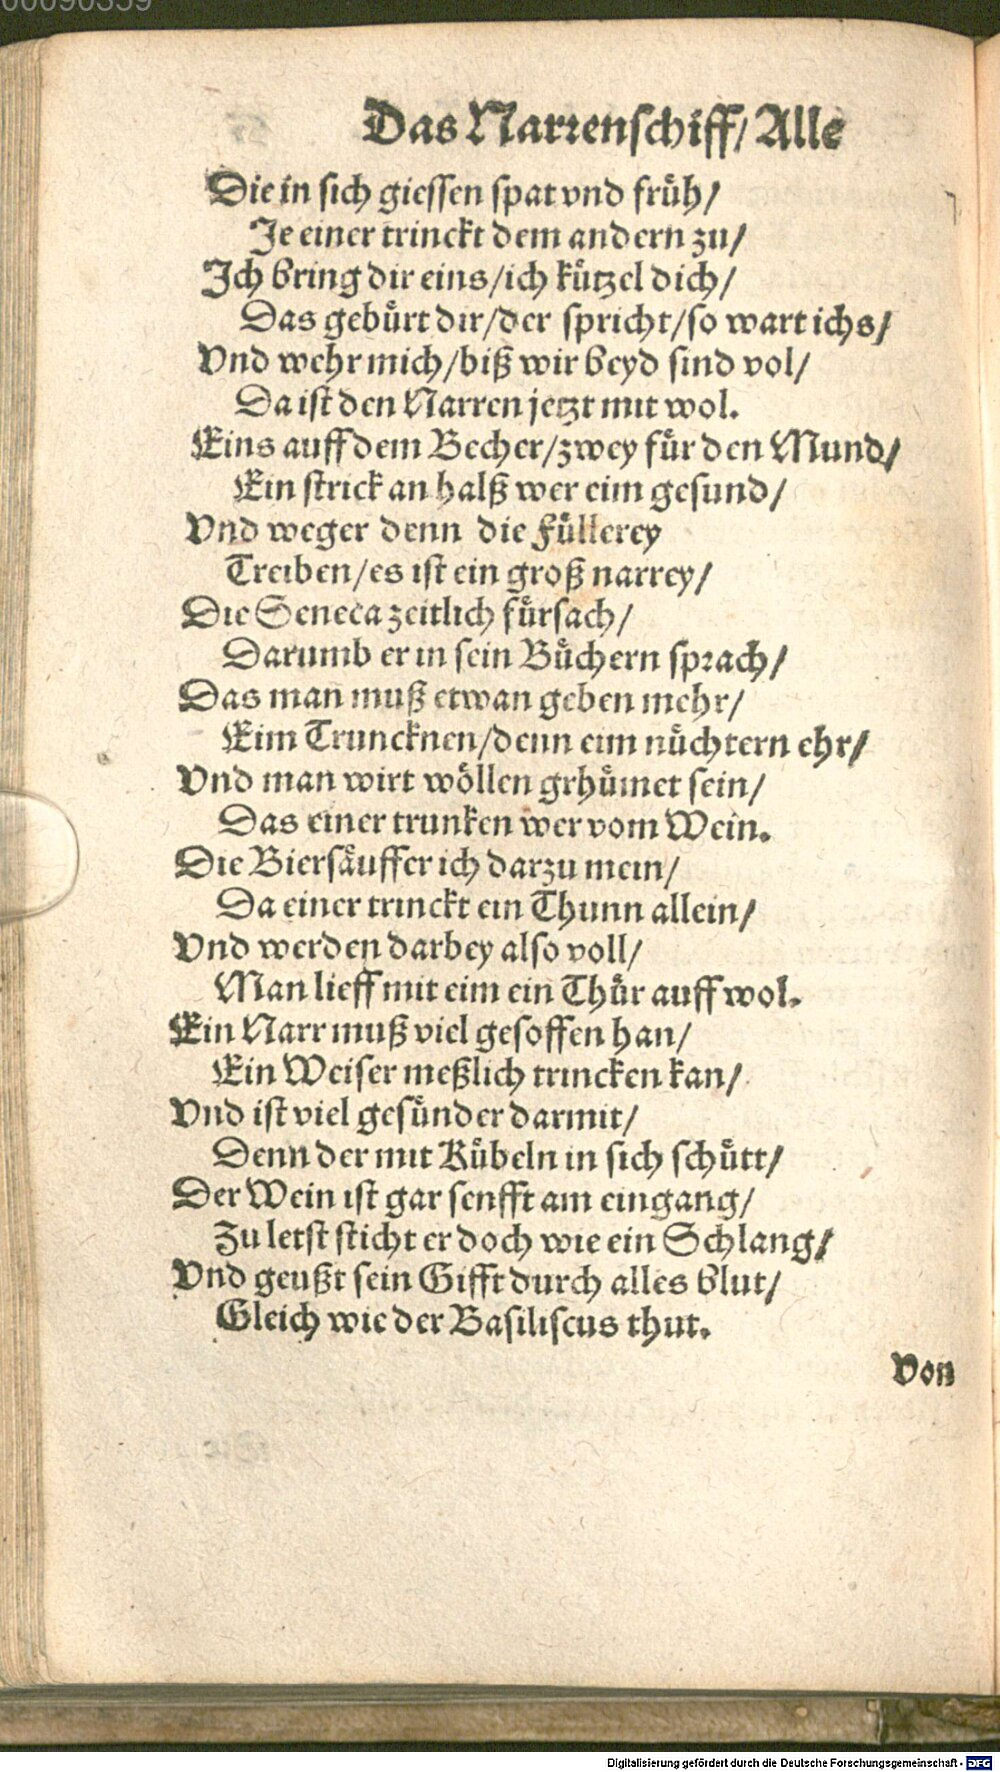 00090359
Das Narrenschiff/ Alle
Die in sich giessen spat vnd früh/
Je einer trinckt dem andern zu/
Ich bring dir eins/ich kützel dich/
Das gebürt dir/der spricht/so wart ichs/
Vnd wehr mich/biß wir beyd sind vol/
Da ist den Narren jetzt mit wol.
Eins auff dem Becher/zwey für den Mund/
Ein strick an halß wer eim gesund/
Vnd weger denn die Füllerey
Treiben/es ist ein groß narrey/
Die Seneca zeitlich fürsach/
Darumb er in sein Büchern sprach/
Das man muß etwan geben mehr/
Eim Truncknen/denn eim nüchtern ehr/
Vnd man wirt wöllen grhümet sein/
Das einer trunken wer vom Wein.
Die Biersäuffer ich darzu mein/
Da einer trinckt ein Thunn allein/
Vnd werden darbey also voll/
Man lieff mit eim ein Thür auff wol.
Ein Narr muß viel gesoffen han/
Ein Weiser meßlich trincken kan/
Vnd ist viel gesünder darmit/
Denn der mit Kübeln in sich schütt/
Der Wein ist gar senfft am eingang/
Zu letst sticht er doch wie ein Schlang/
Vnd geußt sein Gifft durch alles blut/
Gleich wie der Basiliscus thut.
Von
Digitalisierung gefördert durch die Deutsche Forschungsgemeinschaft - DFG